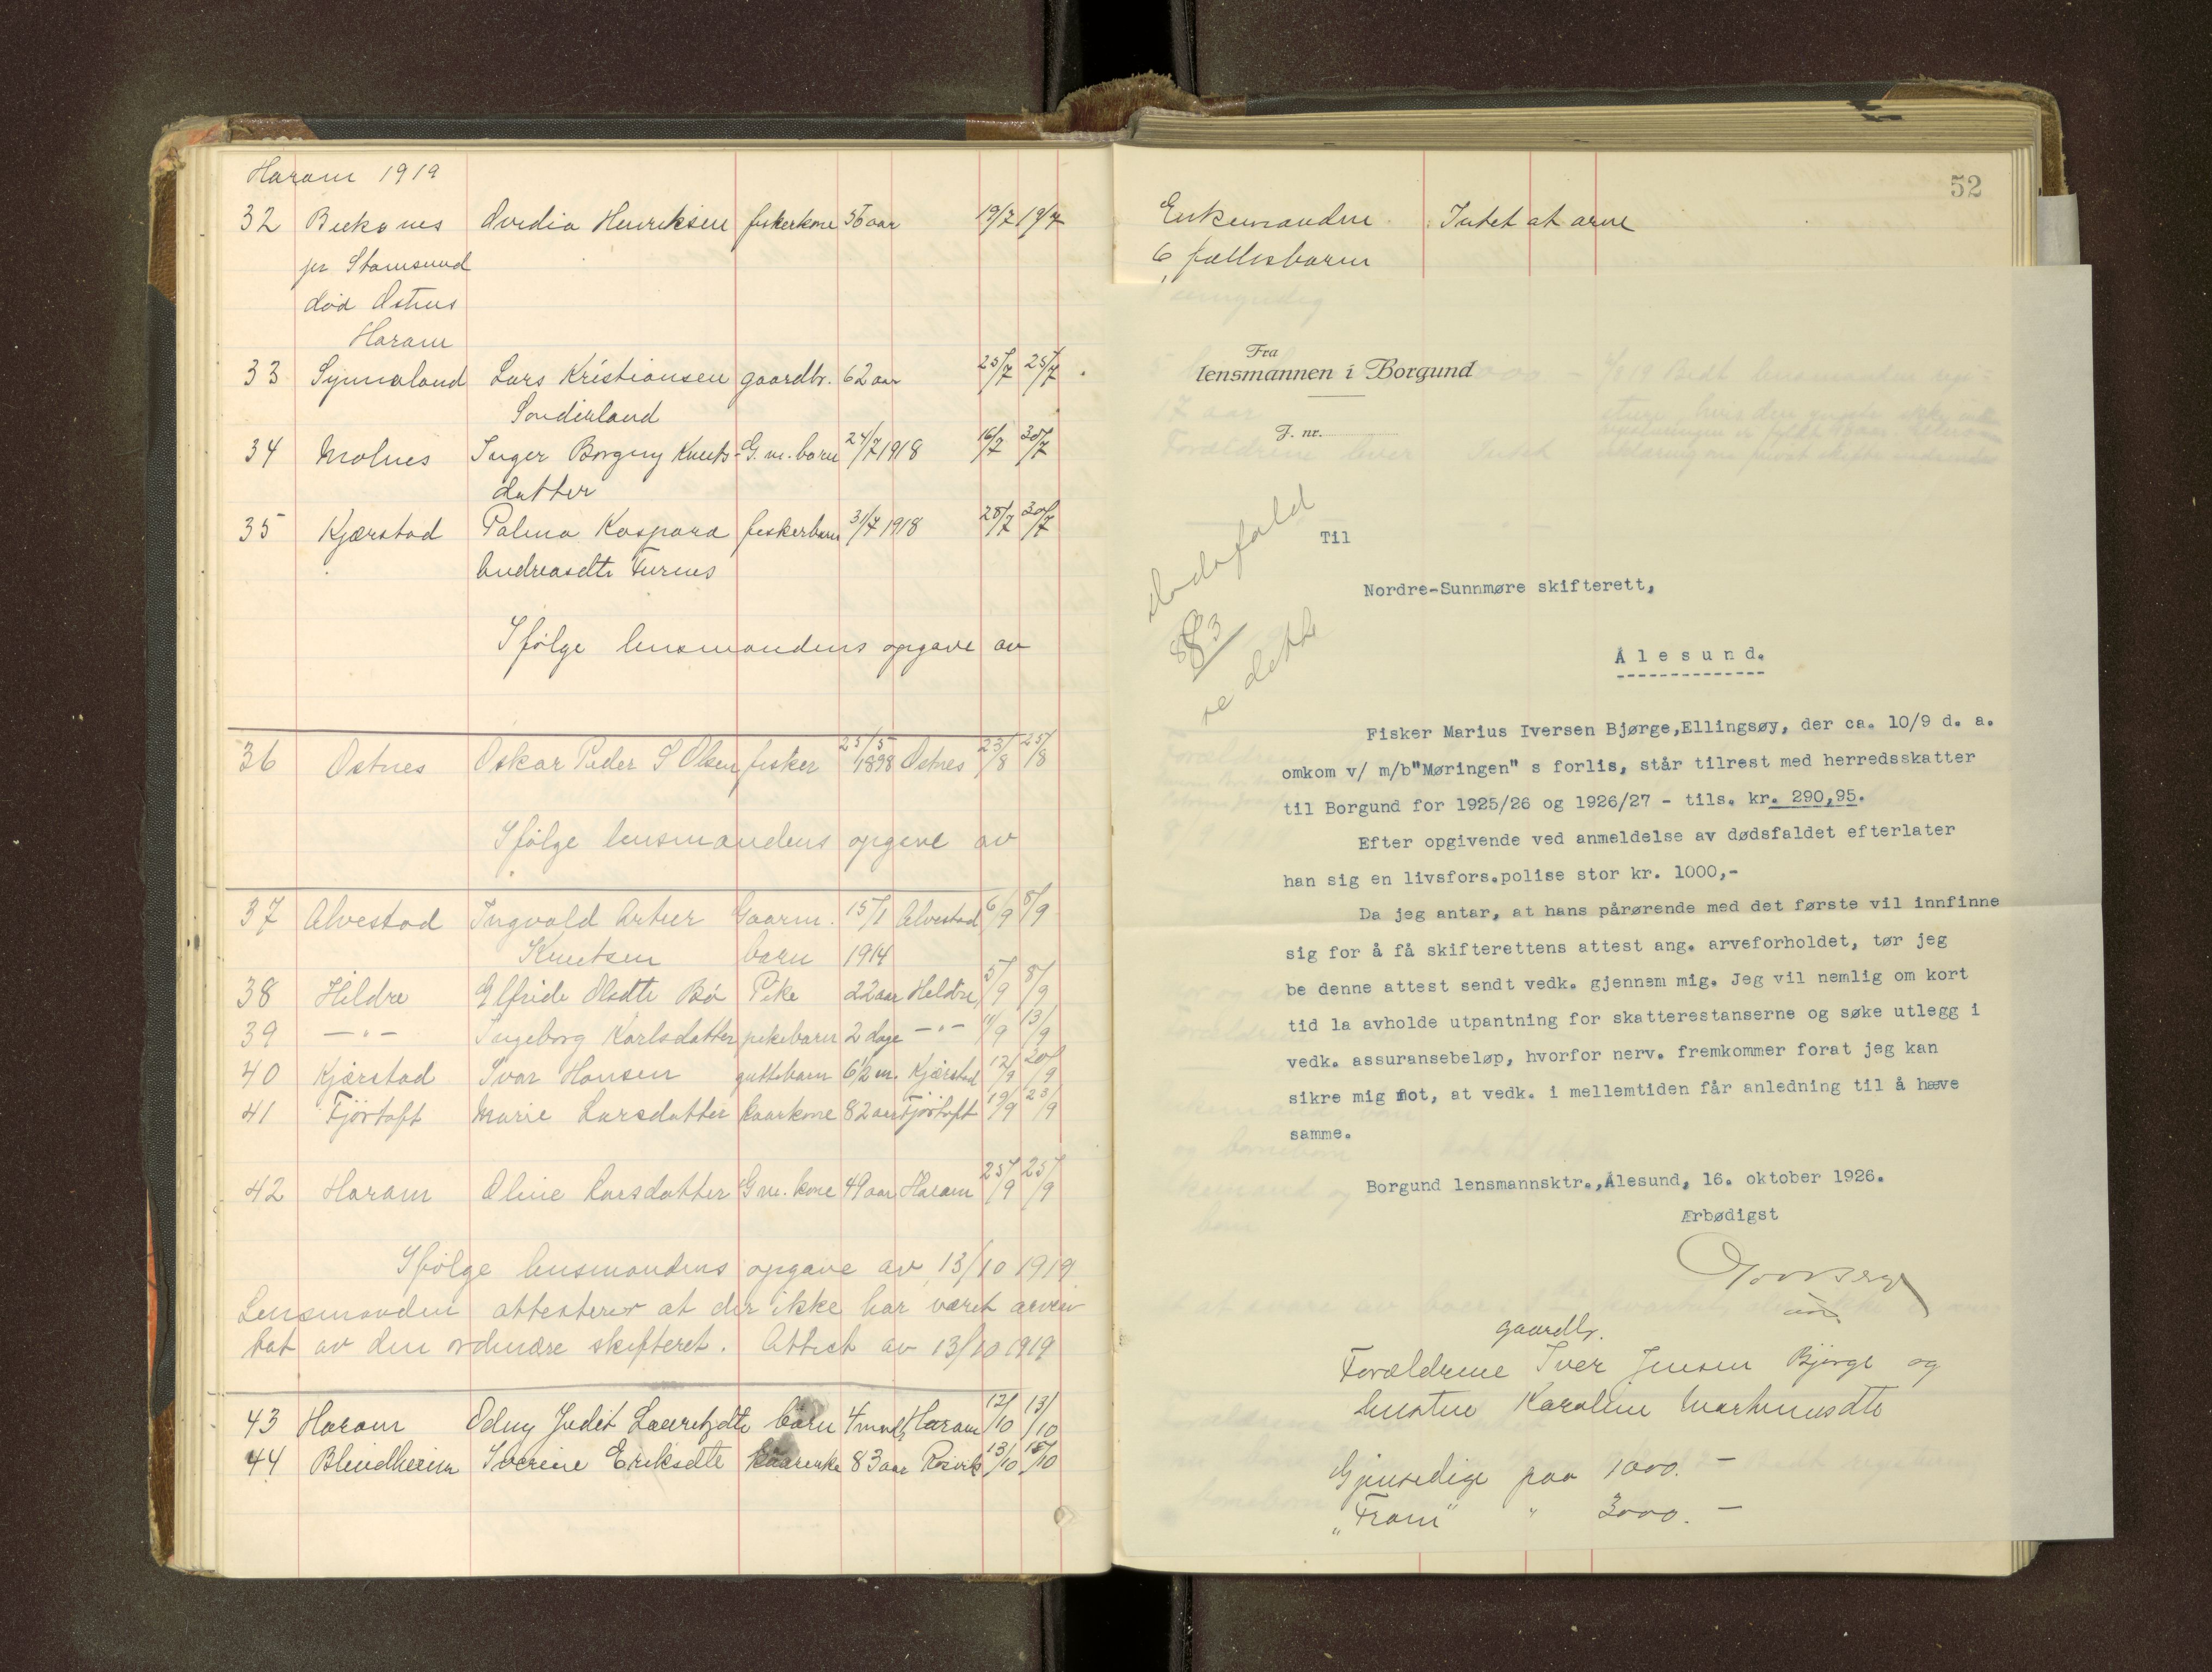 Haram 1919
32 Ovidia Henriksen fiskerkone 56 aar 19/7 19/7
pr Stamsund
död Ostnes
Haram
33 Synnaland Lars Kristiansen gaardbr. 62 aar 25/7 25/7
Sönderland
34 Molnes Inger Borgny Knuts- G.m. barn 24/7 1918 16/7 30/7
datter
35 Kjærstad Palma Kaspara fiskerbarn 31/7 1918 28/7 30/7
Andreasdtr Furnes
Ifølge lensmandens opgave av
36 Ostnes Oskar Peder S Olsen fisker 25/5 1898 Ostnes 23/8 25/8
Ifølge lensmandens opgave av
37 Alvestad Ingvald Artur Gaarm. 15/1 Alvestad 6/9 8/9
Knutsen barn 1914
38 Hildre Elfride Olsdtr Bö Pike 22 aar Hildre 5/9 8/9
39 —"— Ingeborg Karlsdatter pikebarn 2 dage —"— 11/9 13/9
40 Kjærstad Ivar Hansen guttebarn 6 1/2 m. Kjærstad 12/9 20/9
41 Fjörtoft Marie Larsdatter kaarkone 82 aar Fjörtoft 19/9 23/9
42 Haram Oline Larsdatter G.m. kone 49 aar Haram 25/9 25/9
Ifølge lensmandens opgave av 13/10 1919
Lensmanden attesterer at der ikke har været arven
tat av den ordinære skifteret. Attest av 13/10 1919
43 Haram Odny Judit Lauritzdtr barn 4 mndr Haram 12/10 13/10
44 Blindheim Iverine Eriksdtr kaarenke 83 aar Rösvik 13/10 15/10
52
Enkemanden Intet at arve
6 fællesbarn
Fra
lensmannen i Borgund
J. nr.
dødsfald
883
Til
Nordre-Sunnmøre skifterett,
Ålesund.
Fisker Marius Iversen Bjørge,Ellingsøy, der ca. 10/9 d. a.
omkom v/ m/b"Møringen" s forlis, står tilrest med herredsskatter
til Borgund for 1925/26 og 1926/27 - tils. kr. 290,95.
Efter opgivende ved anmeldelse av dødsfaldet efterlater
han sig en livsfors.polise stor kr. 1000,-
Da jeg antar, at hans pårørende med det første vil innfinne
sig for å få skifterettens attest ang. arveforholdet, tør jeg
be denne attest sendt vedk. gjennem mig. Jeg vil nemlig om kort
tid la avholde utpantning for skatterestanserne og søke utlegg i
vedk. assuransebeløp, hvorfor nerv. fremkommer forat jeg kan
sikre mig mot, at vedk. i mellemtiden får anledning til å hæve
samme.
Borgund lensmannsktr.,Ålesund, 16. oktober 1926.
Ærbødigst
gaardbr.
Forældrene Iver Jensen Bjørge og
hustru Karoline Martinusdtr
Gjensidige paa 1000.—
"Fram" " 3000.—